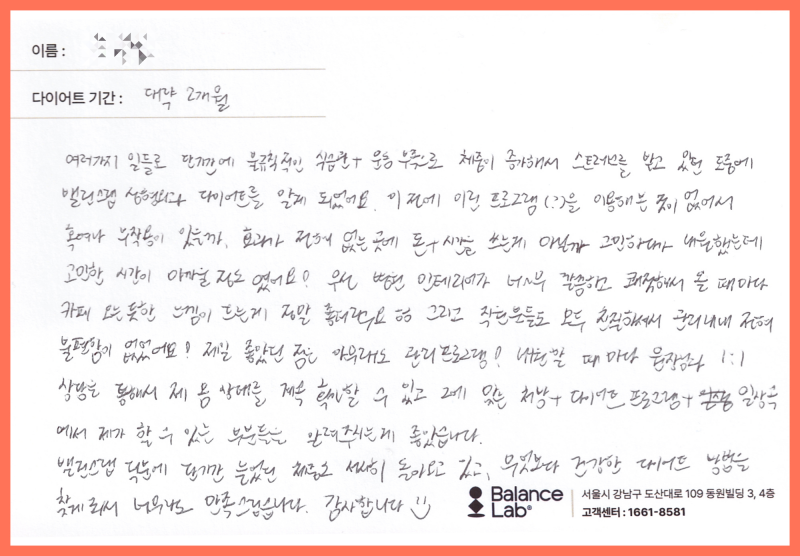 이름 :
다이어트 기간 : 대략 2개월
여러가지 일들로 단기간에 불규칙적인 식습관 + 운동 부족으로 체중이 증가해서 스트레스를 받고 있던 도중에
밸런스랩 성형외과 다이어트를 알게 되었어요. 이 전에 이런 프로그램(?)을 이용해본 적이 없어서
혹여나 부작용이 있을까, 효과가 전혀 없는 곳에 돈+시간을 쓰는게 아닐까 고민하다가 내원했는데
고민한 시간이 아까울 정도 였어요! 우선 병원 인테리어가 너~무 깔끔하고 쾌적해서 올 때마다
카페 오는듯한 느낌이 드는게 정말 좋더라구요 그리고 직원분들도 모두 친절하셔서 관리내내 전혀
불편함이 없었어요! 제일 좋았던 점은 아무래도 관리프로그램! 내원할 때 마다 원장님과 1:1
상담을 통해서 제 몸 상태를 계속 확인할 수 있고 그에 맞는 처방 + 다이어트 프로그램 + 일상속
에서 제가 할 수 있는 부분들을 알려주시는게 좋았습니다.
밸런스랩 덕분에 단기간 늘었던 체중도 서서히 돌아오고 있고, 무엇보다 건강한 다이어트 방법을
찾게 되서 너무나도 만족스럽습니다. 감사합니다
Balance Lab®
서울시 강남구 도산대로 109 동원빌딩 3, 4층
고객센터 : 1661-8581